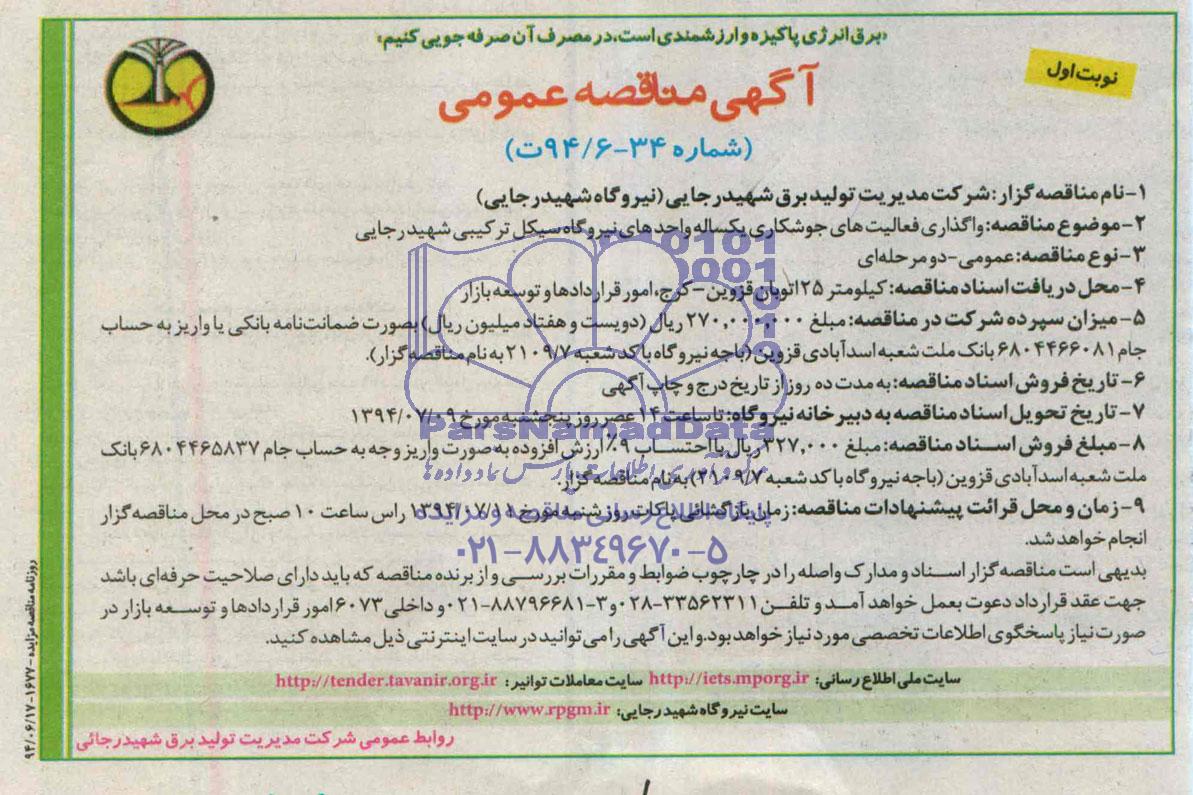 «برق انرژی پاکیزه و ارزشمندی است، در مصرف آن صرفه جویی کنیم»
نوبت اول
آگهی مناقصه عمومی
(شماره ۳۴-۹۴/۶ت)
۱-نام مناقصه گزار: شرکت مدیریت تولید برق شهید رجایی (نیروگاه شهید رجایی)
۲-موضوع مناقصه: واگذاری فعالیت های جوشکاری یکساله واحدهای نیروگاه سیکل ترکیبی شهید رجایی
۳-نوع مناقصه: عمومی-دو مرحله‌ای
۴-محل دریافت اسناد مناقصه: کیلومتر ۲۵ اتوبان قزوین-کرج، امور قراردادها و توسعه بازار
۵-میزان سپرده شرکت در مناقصه: مبلغ ۲۷۰,۰۰۰,۰۰۰ ریال (دویست و هفتاد میلیون ریال) بصورت ضمانت‌نامه بانکی یا واریز به حساب
جام ۶۸۰۴۴۶۶۰۸۱ بانک ملت شعبه اسدآبادی قزوین (باجه نیروگاه با کد شعبه ۲۱۰۹/۷ به نام مناقصه گزار).
۶-تاریخ فروش اسناد مناقصه: به مدت ده روز از تاریخ درج و چاپ آگهی
۷-تاریخ تحویل اسناد مناقصه به دبیر خانه نیروگاه: تا ساعت ۱۴ عصر روز پنجشنبه مورخ ۱۳۹۴/۰۷/۰۹
۸-مبلغ فروش اسناد مناقصه: مبلغ ۳۲۷,۰۰۰ ریال با احتساب ۹٪ ارزش افزوده به صورت واریز وجه به حساب جام ۶۸۰۴۴۶۵۸۳۷ بانک
ملت شعبه اسدآبادی قزوین (باجه نیروگاه با کد شعبه ۲۱۰۹/۷) به نام مناقصه گزار.
۹-زمان و محل قرائت پیشنهادات مناقصه: زمان بازگشائی پاکات روز شنبه مورخ ۱۳۹۴/۰۷/۱۱ راس ساعت ۱۰ صبح در محل مناقصه گزار
انجام خواهد شد.
بدیهی است مناقصه گزار اسناد و مدارک واصله را در چارچوب ضوابط و مقررات بررسی و از برنده مناقصه که باید دارای صلاحیت حرفه‌ای باشد
جهت عقد قرارداد دعوت بعمل خواهد آمد و تلفن ۳۳۵۶۲۳۱۱-۰۲۸ و ۳-۸۸۷۹۶۶۸۱-۰۲۱ و داخلی ۶۰۷۳ امور قراردادها و توسعه بازار در
صورت نیاز پاسخگوی اطلاعات تخصصی مورد نیاز خواهد بود. و این آگهی را می توانید در سایت اینترنتی ذیل مشاهده کنید.
سایت ملی اطلاع رسانی: http://iets.mporg.ir سایت معاملات توانیر: http://tender.tavanir.org.ir
سایت نیروگاه شهید رجایی: http://www.rpgm.ir
روابط عمومی شرکت مدیریت تولید برق شهید رجائی
روزنامه مناقصه مزایده - ۱۶۷۷ - ۹۴/۰۶/۱۷
0101
0001
ParsNamadData
پایگاه اطلاع رسانی مناقصه و مزایده
۰۲۱-۸۸۳٤۹۶۷۰-۵